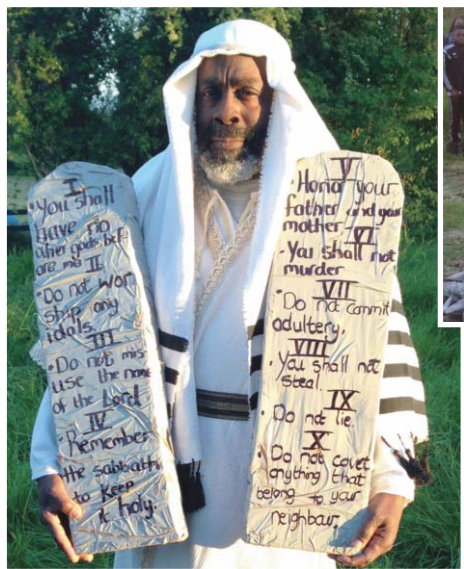 I
• You shall
have no
other gods bef
ore me II
• Do not wor
ship any
idols.
III
• Do not mis
use the name
of the Lord.
IV
• Remember
the sabbath
to keep
it holy.
V
• Honor your
father and your
mother VI
• You shall not
murder
VII
• Do not commit
adultery.
VIII
• You shall not
steal.
IX
• Do not lie.
X
• Do not covet
anything that
belong to your
neighbour.